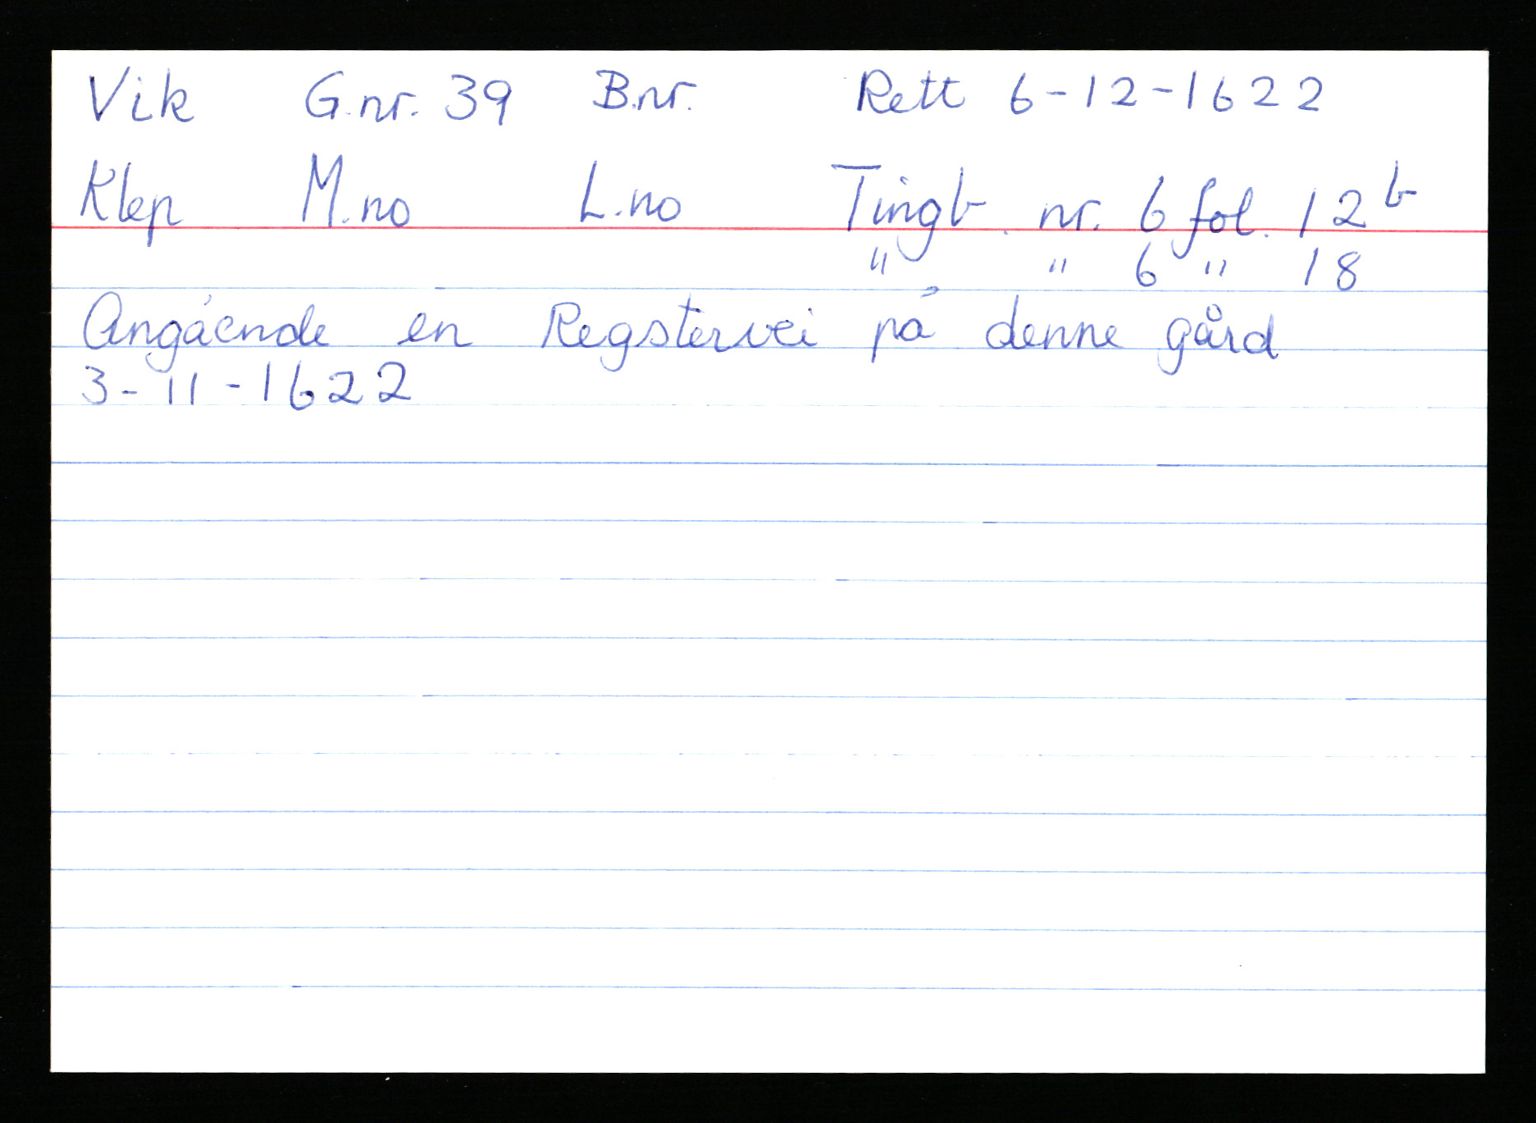 Vik G.nr. 39 B.nr. Rett 6-12-1622
Klep M.no L.no Tingb. nr. 6 fol. 12 b
" " 6 " 18
Angående en Regstervei på denne gård
3-11-1622